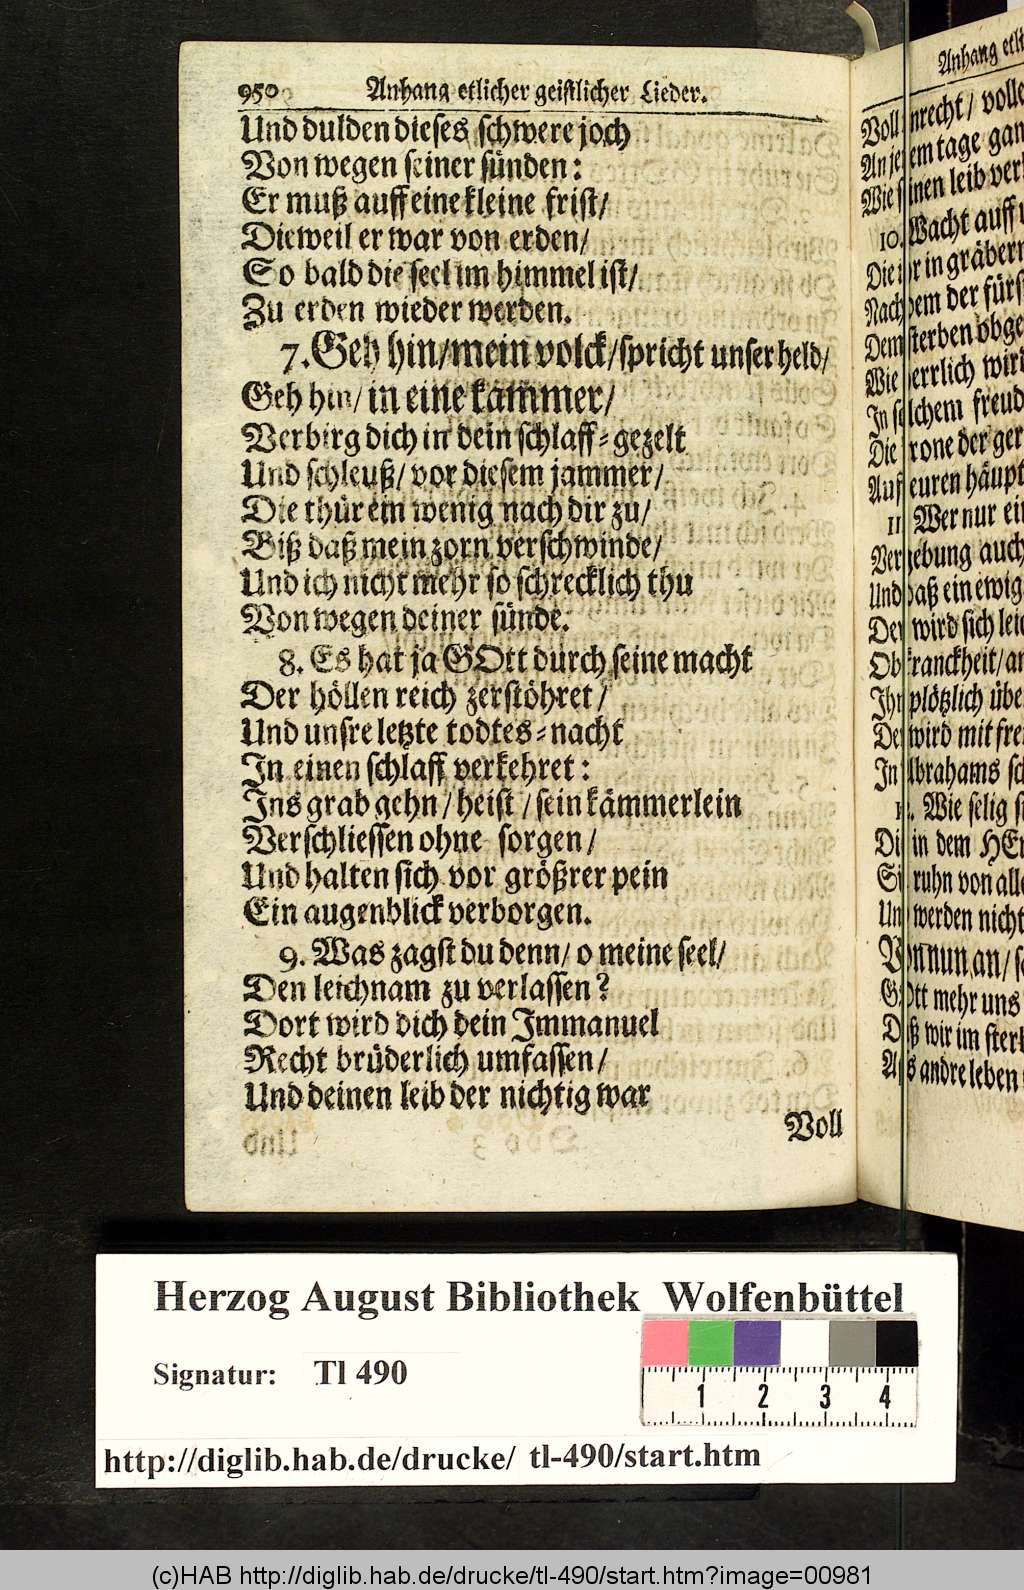 950 Anhang etlicher geistlicher Lieder.
Und dulden dieses schwere joch
Von wegen seiner sünden:
Er muß auff eine kleine frist/
Dieweil er war von erden/
So bald die seel im himmel ist/
Zu erden wieder werden.
7. Geh hin/mein volck/spricht unser held/
Geh hin/ in eine kammer/
Verbirg dich in dein schlaff=gezelt
Und schleuß/ vor diesem jammer/
Die thür ein wenig nach dir zu/
Biß daß mein zorn verschwinde/
Und ich nicht mehr so schrecklich thu
Von wegen deiner sünde.
8. Es hat ja GOtt durch seine macht
Der höllen reich zerstöhret/
Und unsre letzte todtes=nacht
In einen schlaff verkehret:
Ins grab gehn/heist/sein kämmerlein
Verschliessen ohne sorgen/
Und halten sich vor größrer pein
Ein augenblick verborgen.
9. Was zagst du denn/ o meine seel/
Den leichnam zu verlassen?
Dort wird dich dein Immanuel
Recht brüderlich umfassen/
Und deinen leib der nichtig war
Voll
Anhang
Voll
tage
leib
10. Wacht auff
in gräbern
der
sterben
wird
freud
der
euren
11. Wer nur
auch
ein
wird sich
kranckheit/
plötzlich
wird mit
Abrahams
Wie selig
in dem
ruhn von
werden nicht
nun an/
mehr uns
wir im
andre leben
Herzog August Bibliothek Wolfenbüttel
Signatur: Tl 490
1 2 3 4
http://diglib.hab.de/drucke/ tl-490/start.htm
(c)HAB http://diglib.hab.de/drucke/tl-490/start.htm?image=00981